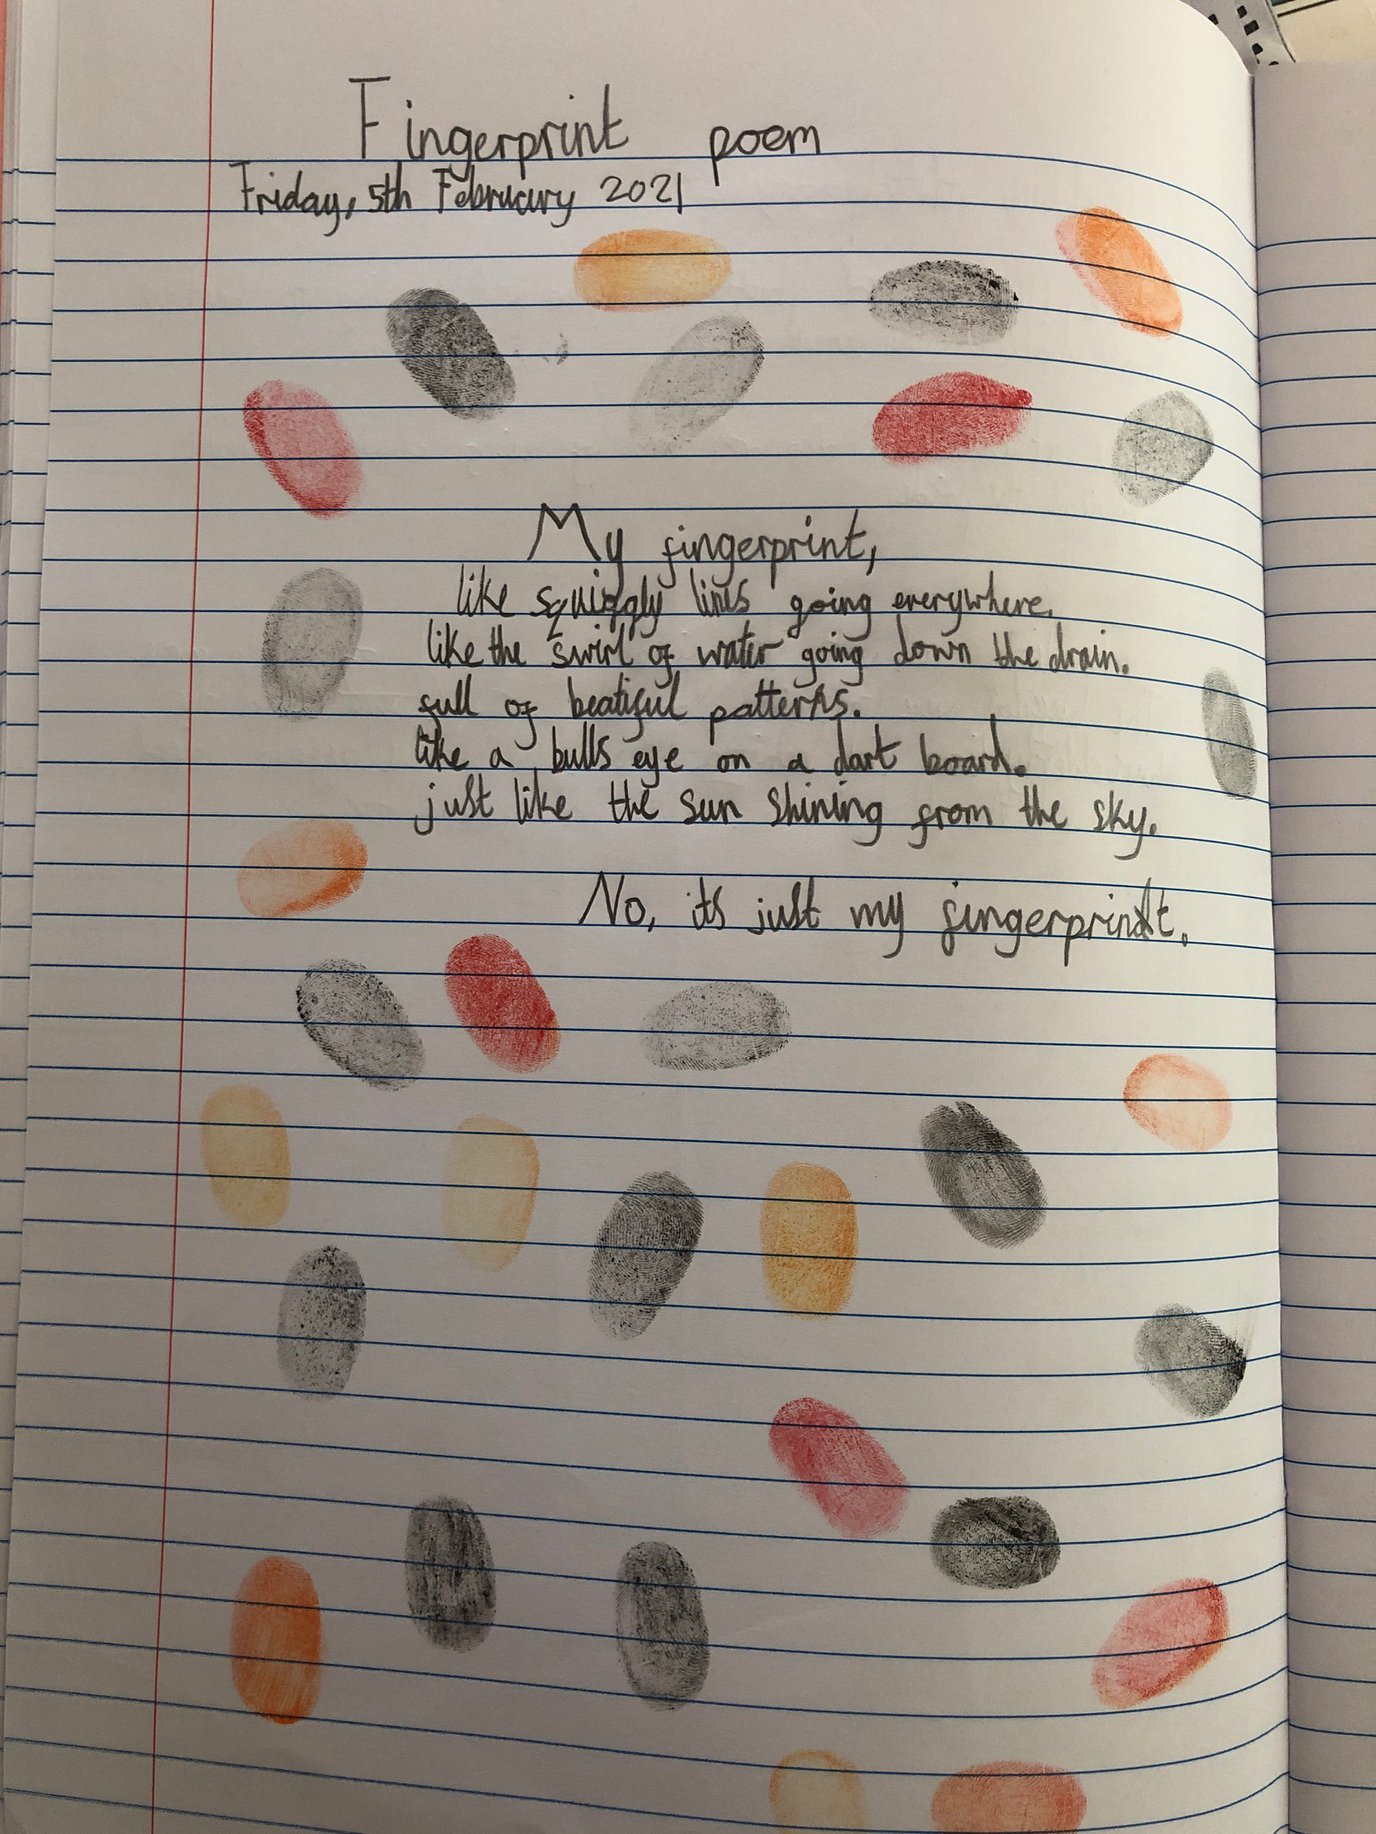 Fingerprint poem
Friday, 5th February 2021
My fingerprint,
like squiggly lines going everywhere.
like the swirl of water going down the drain.
full of beatiful patterns.
like a bulls eye on a dart board.
just like the sun shining from the sky.
No, its just my fingerprint.